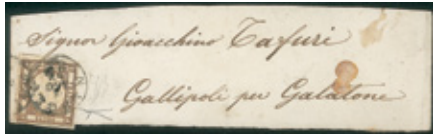 Signor Gioacchino Tafuri
Gallipoli per Galatone